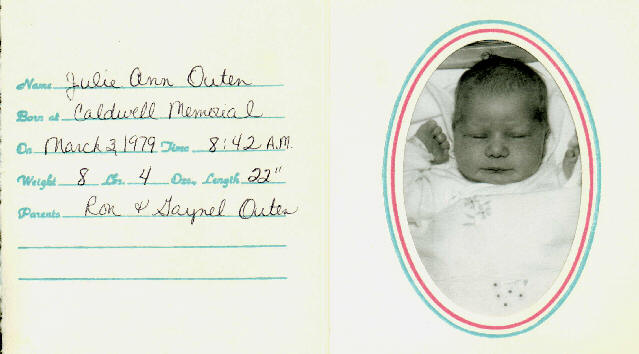 Name Julie Ann Outen
Born at Caldwell Memorial
On March 3, 1979 Time 8:42 A.M.
Weight 8 Lbs. 4 Ozs., Length 22"
Parents Ron & Gaynel Outen